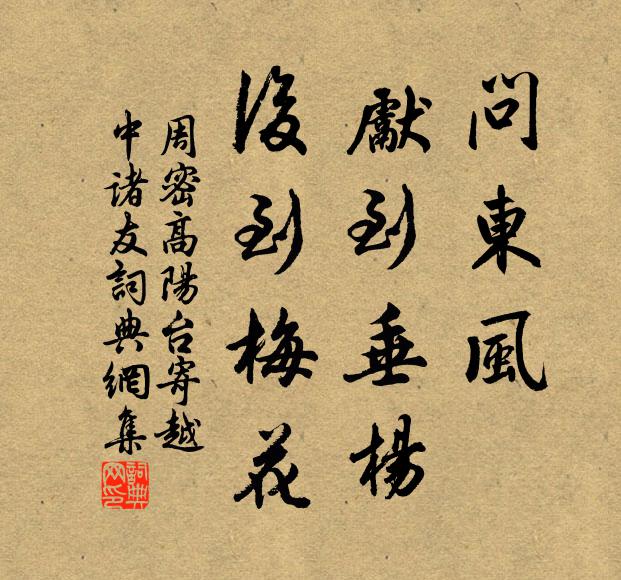 問東風
獻到垂楊
後到梅花
周密高陽台寄越
中诸友詞典網集
詞典网印